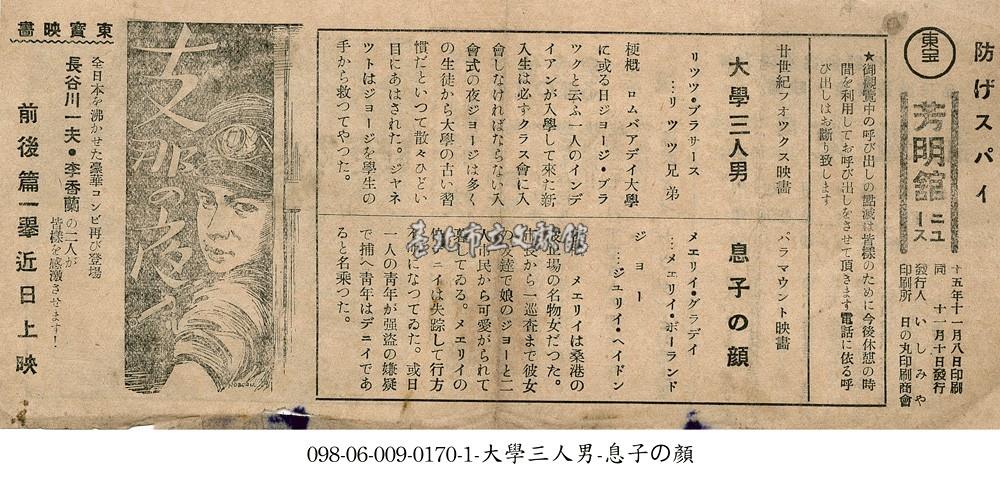 防げスパイ
東宝
芳明舘ニュース
十五年十一月八日印刷
同 十一月十日發行
發行人 いしみや
印刷所 日の丸印刷商會
★御觀覽中の呼び出しの點滅は皆樣のために今後休憩の時
間を利用してお呼び出しをさせて頂きます電話に依る呼
び出しはお斷り致します
廿世紀フオツクス映畫
大學三人男
リツツ・ブラザース
…リツツ兄弟
梗概 ロムバアデイ大學
に或る日ジョージ・ブラ
ツクと云ふ一人のインデ
イアンが入學して來た新
入生は必ずクラス會に入
會しなければならない入
會式の夜ジョージは多く
の生徒から大學の古い習
慣だといつて散々ひどい
目にあはされた。ジヤネ
ツトはジョージを學生の
手から救つてやつた。
パラマウント映畫
息子の顔
メエリイ・グラデイ
…メエリイ・ボーランド
ジョー
…ジユリイ・ヘイドン
メエリイは桑港の
場の名物女だつた。
長から一巡査まで彼女
の友達で娘のジョーと二
人市民から可愛がられて
暮してゐる。メエリイの
ニイは失踪して行方
になつてゐた。或日
一人の青年が强盜の嫌疑
で捕へ青年はデニイであ
ると名乘つた。
臺北市立文獻館
支那の夜
NOBORU
東寶映畵
全日本を沸かせた豪華コンビ再び登場
長谷川一夫・李香蘭の二人が
皆樣を感激させます！
前後篇一擧近日上映
098-06-009-0170-1-大學三人男-息子の顏